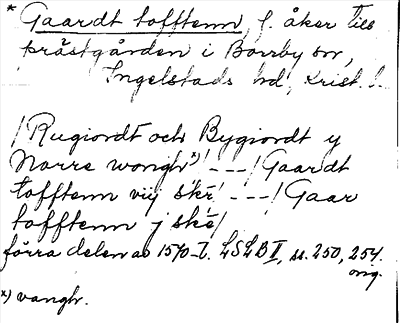 * Gaardt tofftenn, f. åker till
prästgården i Borrby sn,
Ingelstads hd, Krist. l.
/Rugiordt och Bygiordt y
Norre wongh x)/ --- / Gaardt
tofftenn vij skr/ --- / Gaar
tofftenn j skē/
förra delen av 1570-t. LSLB II, s. 250, 254.
orig.
x) vangh.